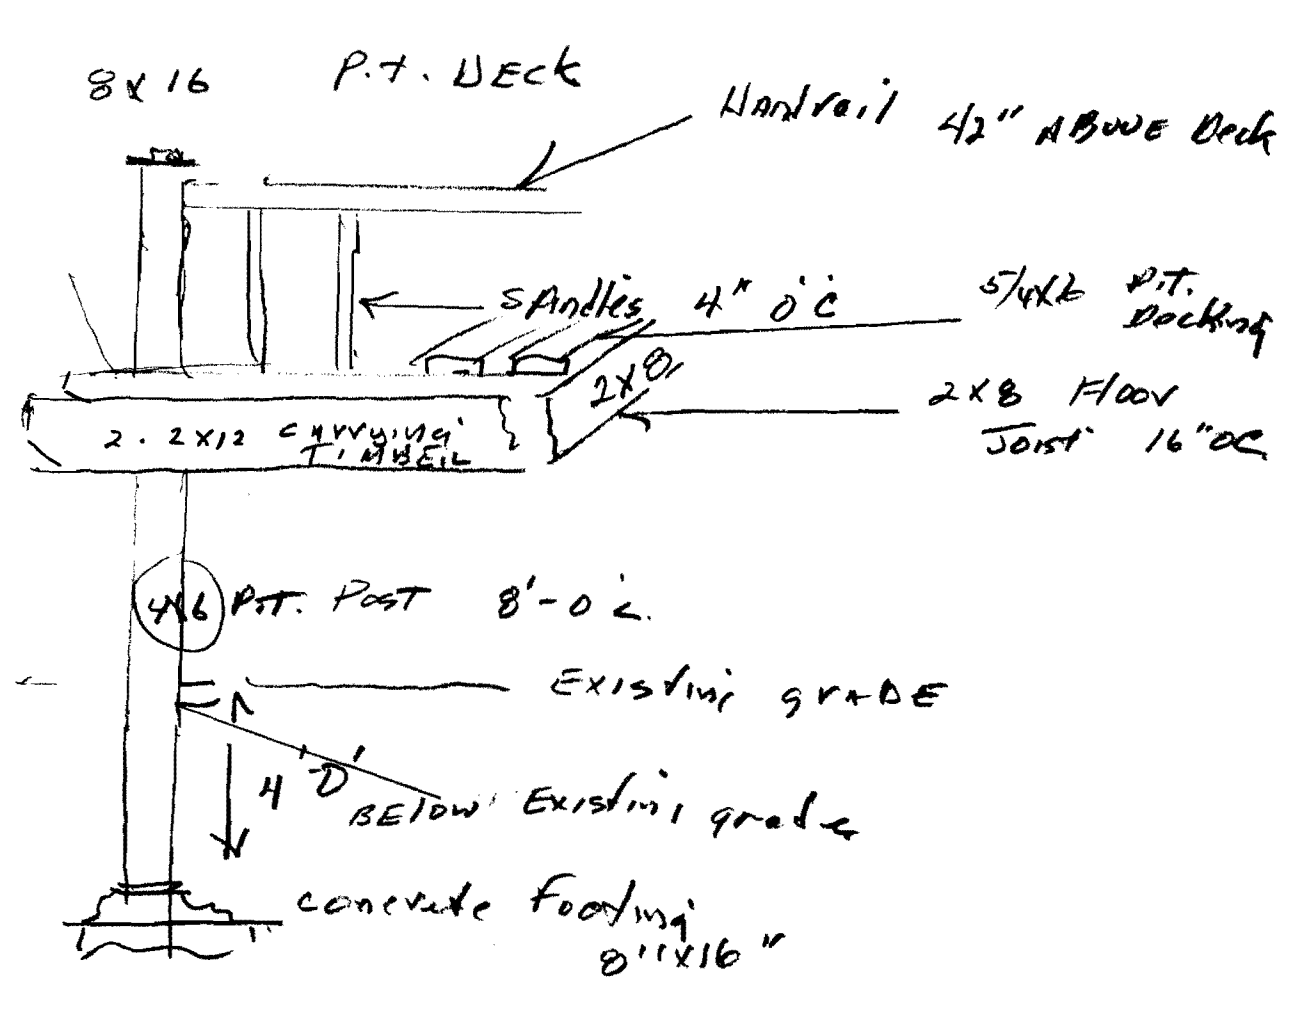 8 x 16 P.t. DECK
Handrail 42" ABOVE Deck
Spindles 4" O.C.
5/4x6 P.T.
Decking
2x8
2x8 Floor
Joist 16" OC
2 . 2x12 carrying
TIMBER
4x6 P.T. POST 8'-0 C.
Existing grADE
4'-0'
BELOW Existing grade
concrete Footing
8"x16"